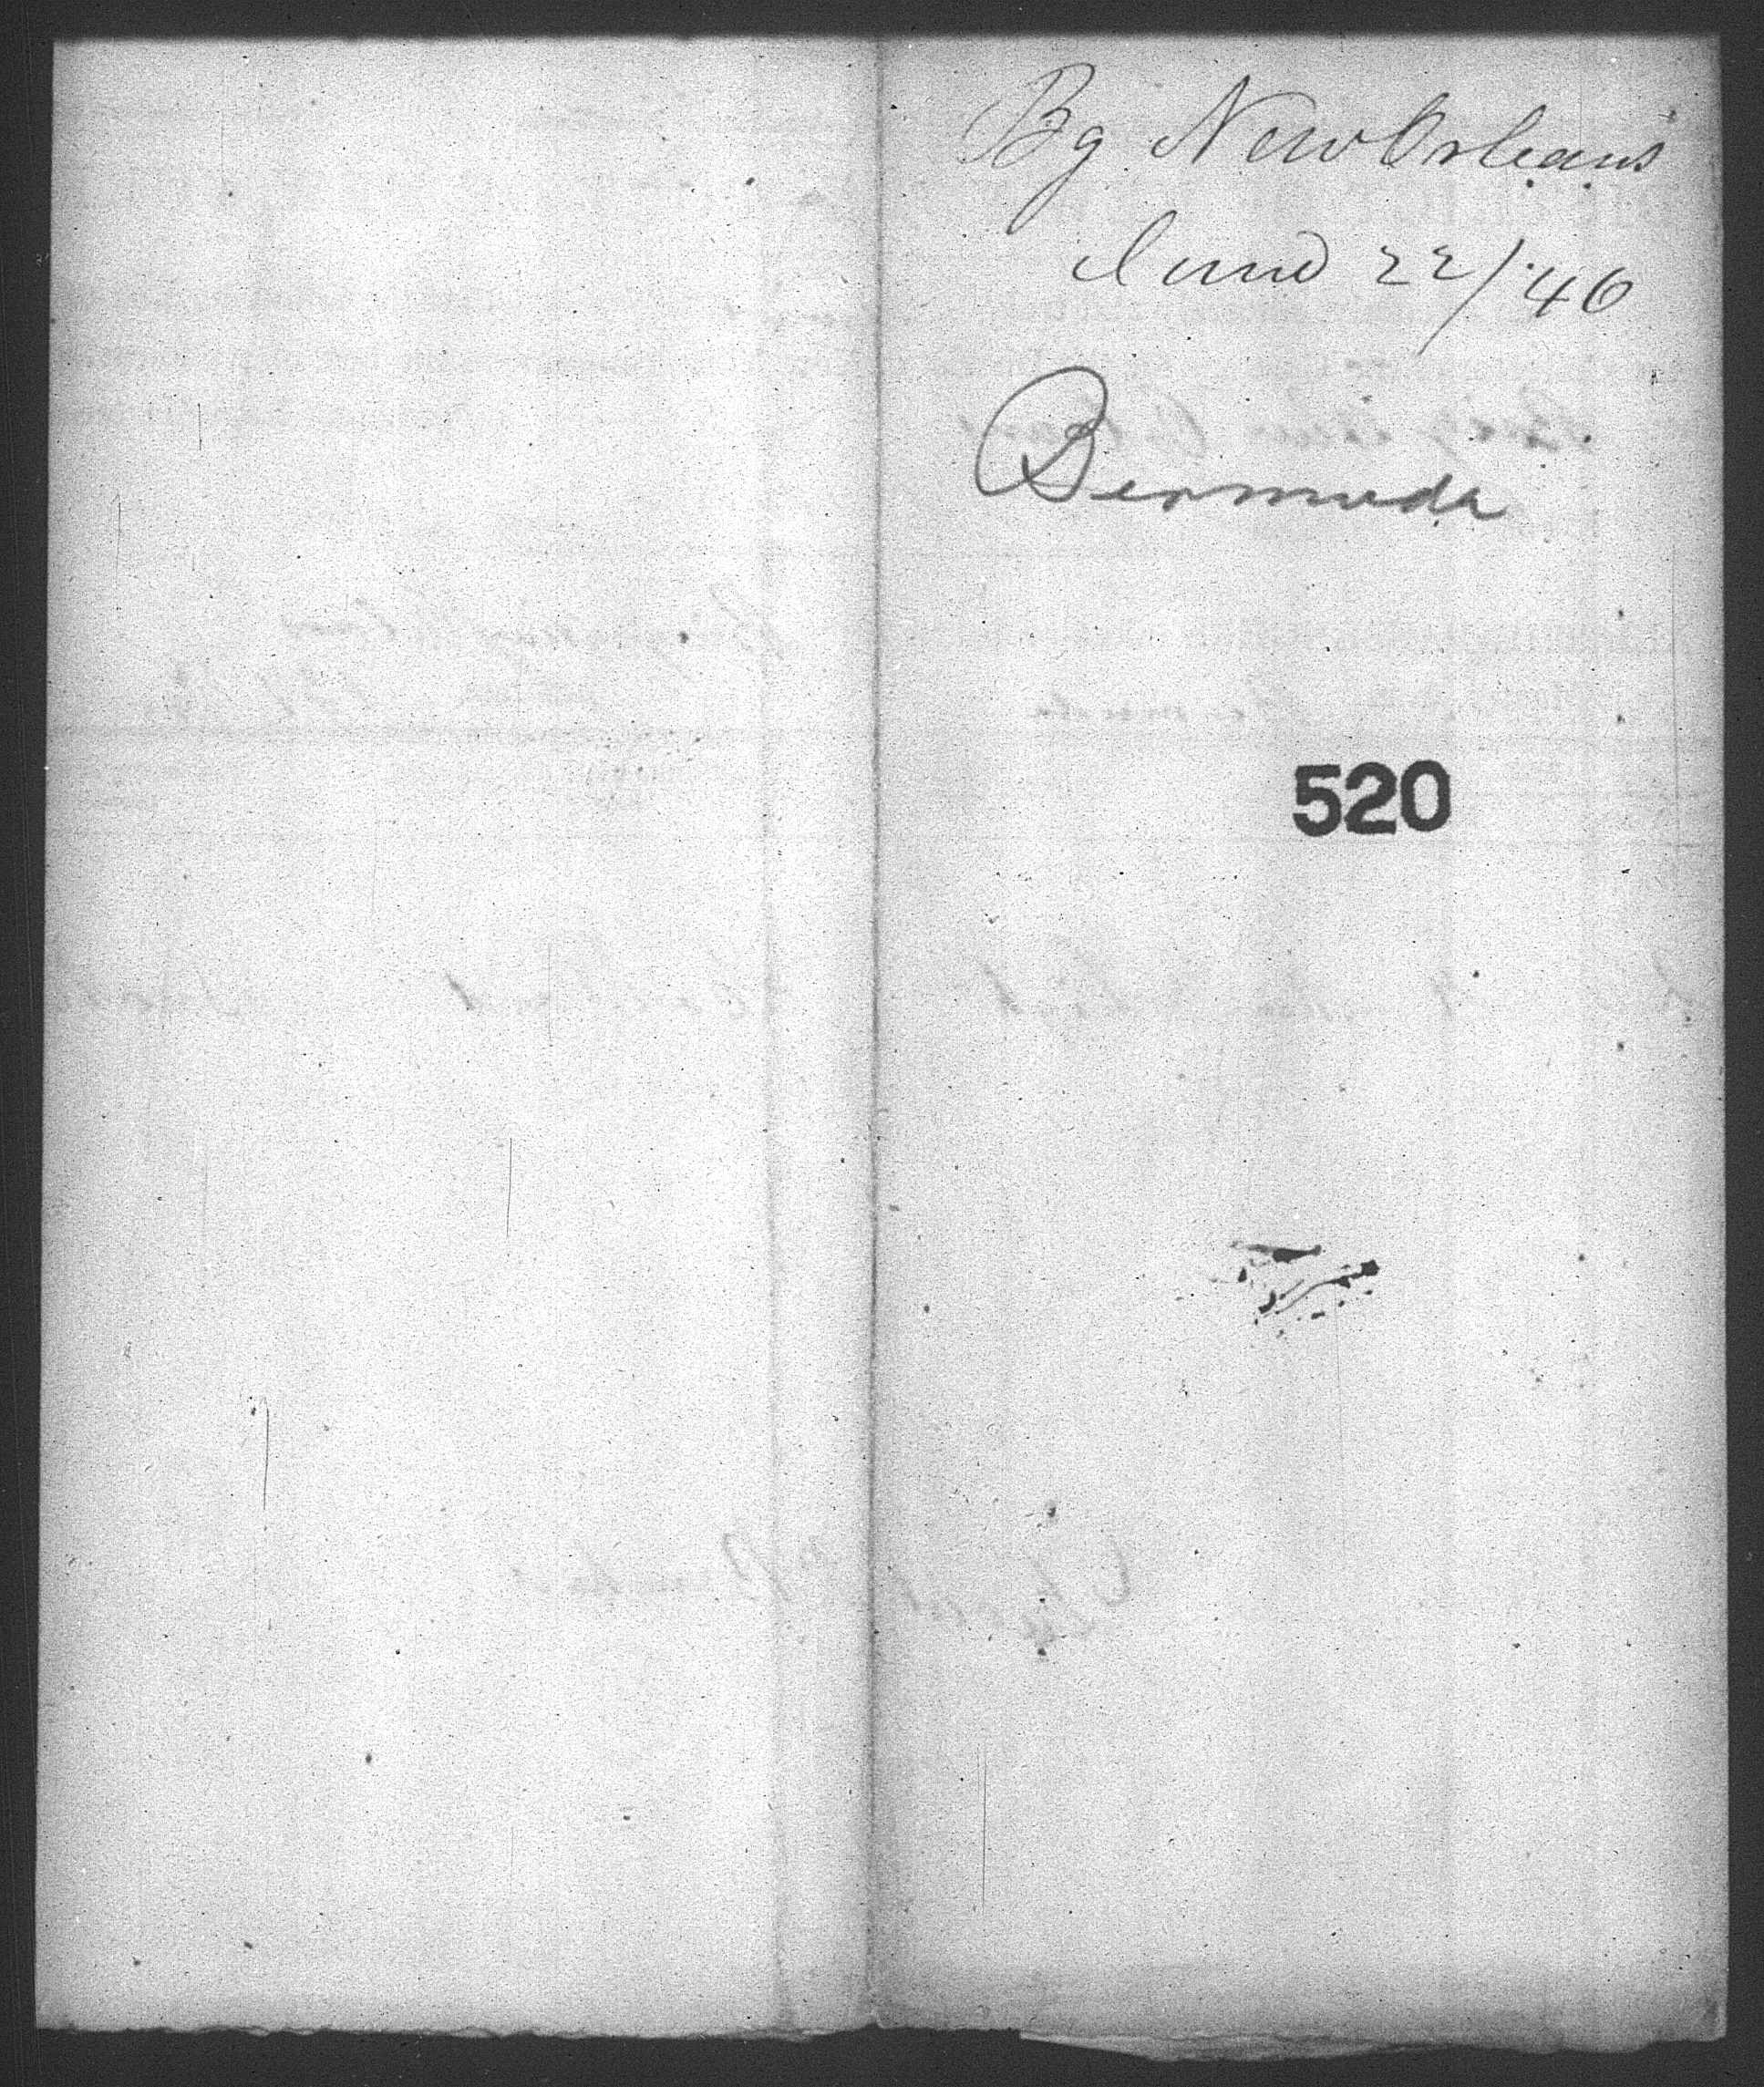 Bg New Orleans
June 22/46
Bermuda
520